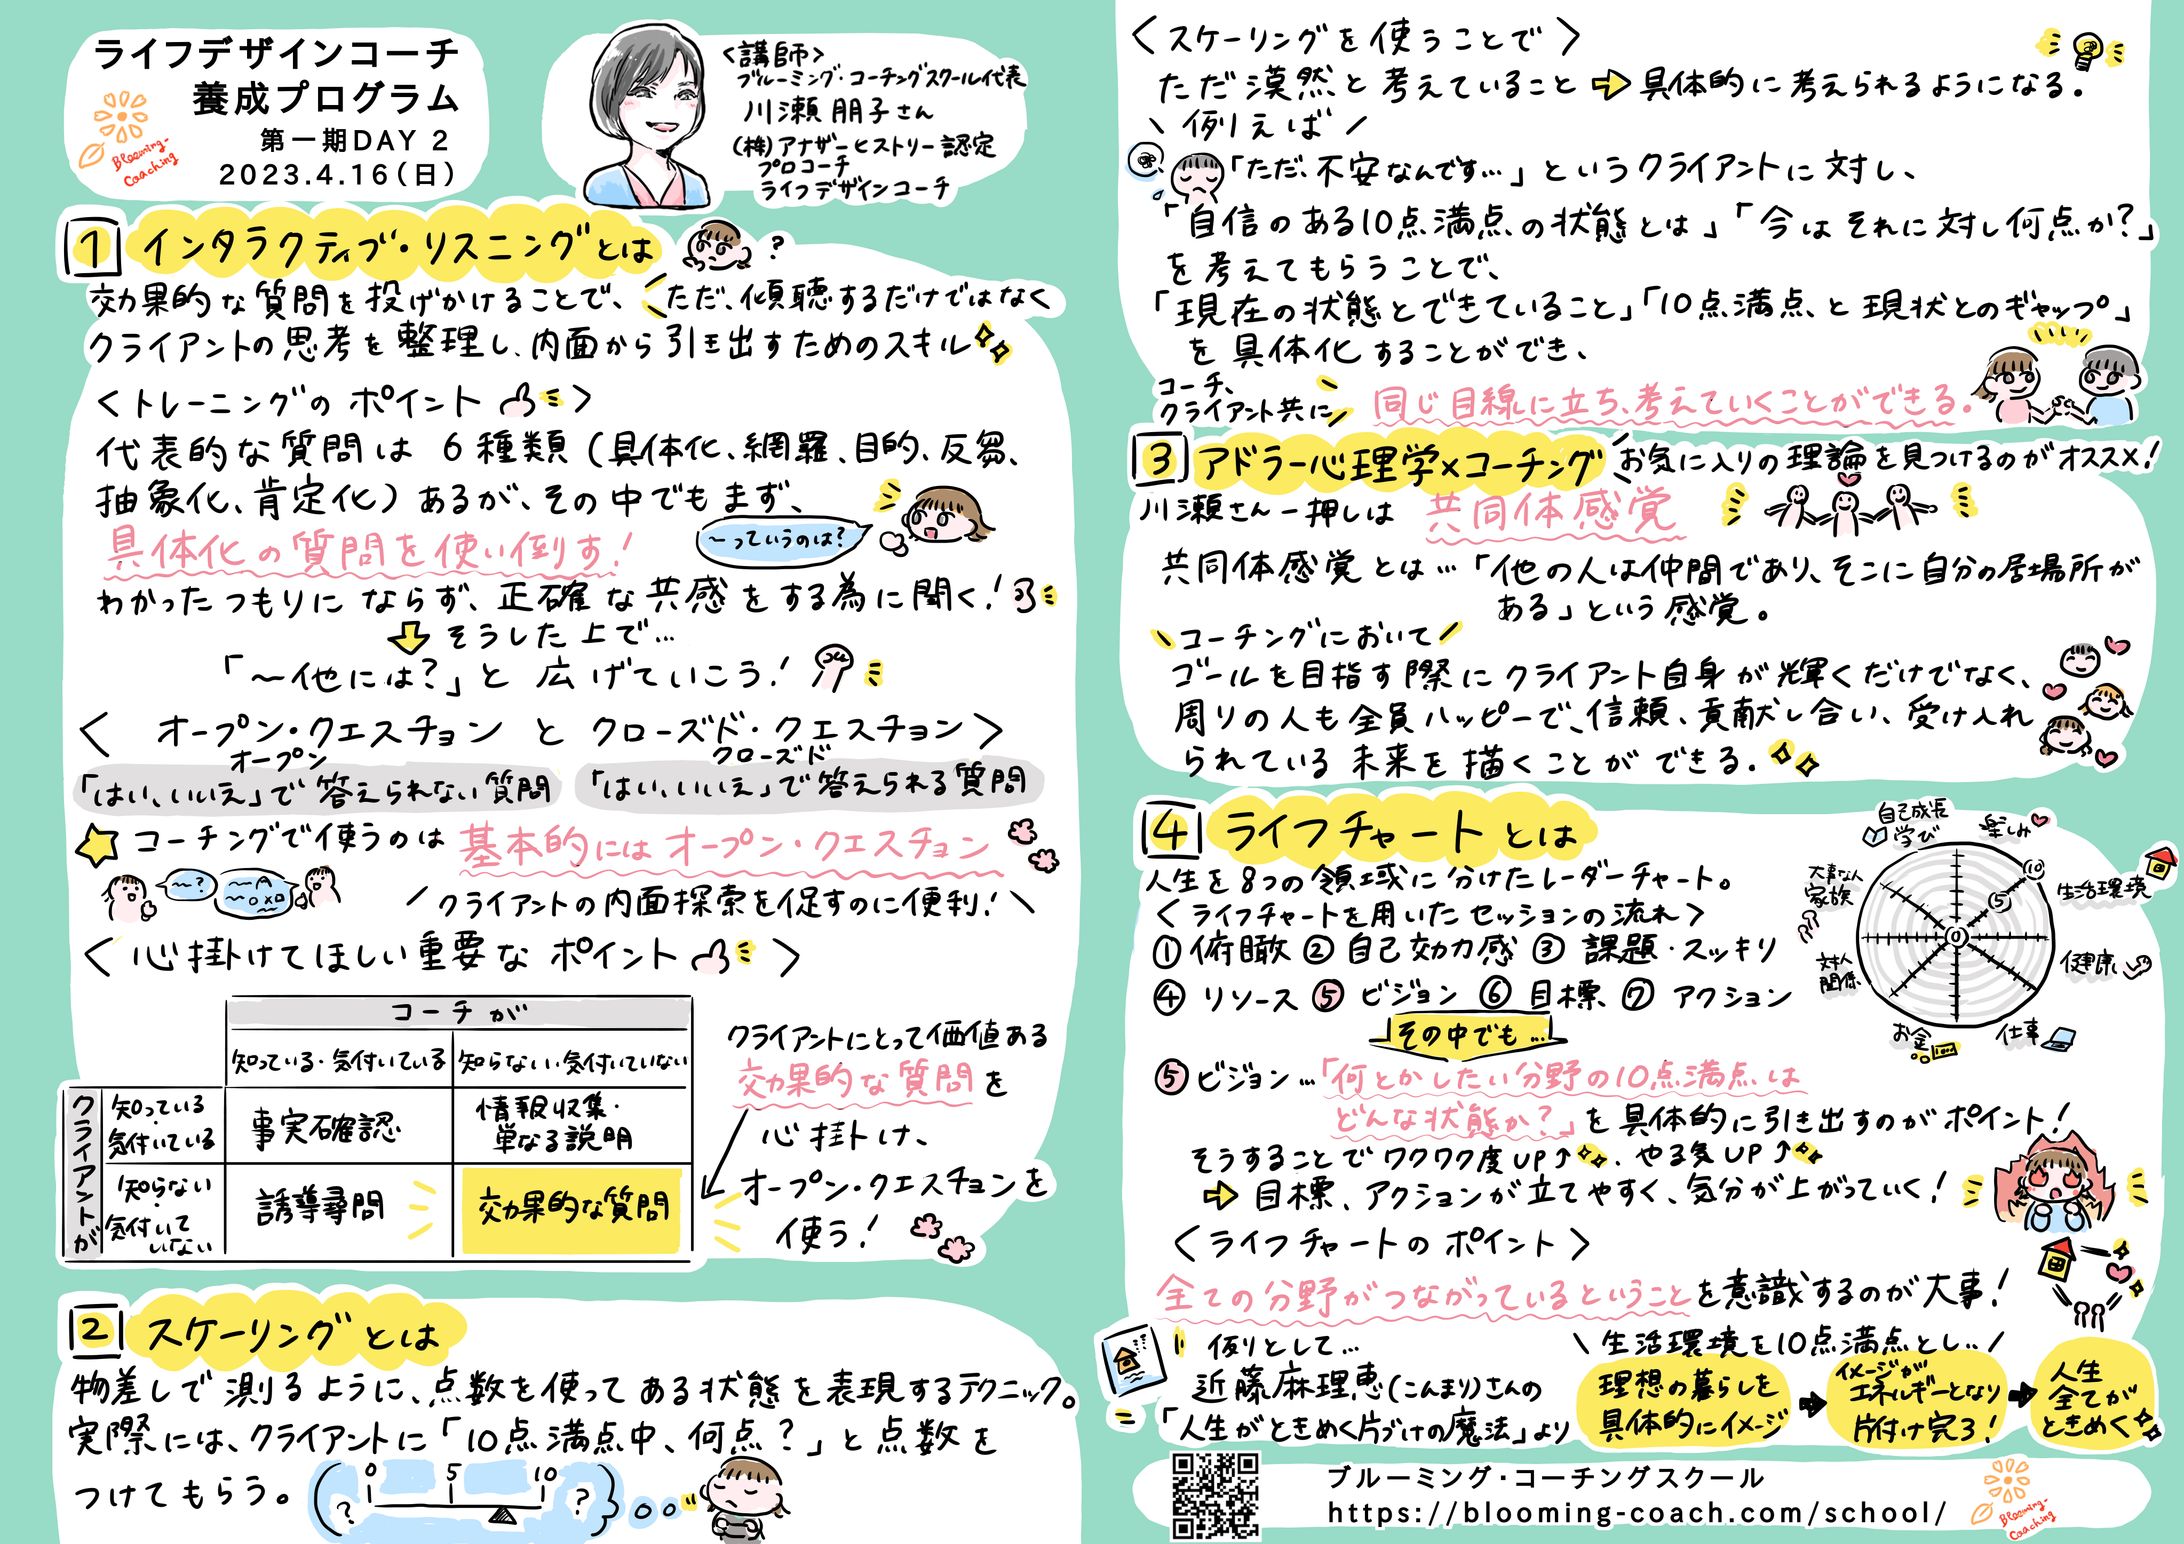 ライフデザインコーチ
養成プログラム
第一期DAY 2
2023.4.16(日)
Blooming-
Coaching
<講師>
ブルーミング・コーチングスクール代表
川瀬 朋子さん
(株)アナザーヒストリー認定
プロコーチ
ライフデザインコーチ
1 インタラクティブ・リスニングとは
?
効果的な質問を投げかけることで、ただ、傾聴するだけではなく
クライアントの思考を整理し、内面から引き出すためのスキル
<トレーニングのポイント>
代表的な質問は 6種類(具体化、網羅、目的、反芻、
抽象化、肯定化)あるが、その中でもまず、
具体化の質問を使い倒す!
〜っていうのは?
わかったつもりにならず、正確な共感をする為に聞く!
そうした上で…
「〜他には?」と広げていこう!
<オープン・クエスチョン と クローズド・クエスチョン>
オープン
「はい、いいえ」で答えられない質問
クローズド
「はい、いいえ」で答えられる質問
コーチングで使うのは 基本的にはオープン・クエスチョン
〜?
クライアントの内面探索を促すのに便利!
<心掛けてほしい重要なポイント>
コーチが
知っている・気付いている
知らない・気付いていない
クライアントが
知っている・
気付いている
事実確認
情報収集・
単なる説明
知らない・
気付いて
いない
誘導尋問
効果的な質問
クライアントにとって価値ある
効果的な質問を
心掛け、
オープン・クエスチョンを
使う!
2 スケーリングとは
物差しで測るように、点数を使ってある状態を表現するテクニック。
実際には、クライアントに「10点満点中、何点?」と点数を
つけてもらう。
? 0 5 10 ?
<スケーリングを使うことで>
ただ漠然と考えていること ⇨ 具体的に考えられるようになる。
\ 例えば /
「ただ、不安なんです…」というクライアントに対し、
「自信のある10点満点の状態とは」「今はそれに対し何点か?」
を考えてもらうことで、
「現在の状態とできていること」「10点満点と現状とのギャップ」
を具体化することができ、
コーチ、
クライアント共に 同じ目線に立ち、考えていくことができる。
3 アドラー心理学×コーチング お気に入りの理論を見つけるのがオススメ!
川瀬さん一押しは 共同体感覚
共同体感覚とは…「他の人は仲間であり、そこに自分の居場所が
ある」という感覚。
\コーチングにおいて/
ゴールを目指す際にクライアント自身が輝くだけでなく、
周りの人も全員ハッピーで、信頼、貢献し合い、受け入れ
られている未来を描くことができる。
4 ライフチャートとは
人生を8つの領域に分けたレーダーチャート。
<ライフチャートを用いたセッションの流れ>
①俯瞰 ②自己効力感 ③課題・スッキリ
④リソース ⑤ビジョン ⑥目標 ⑦アクション
自己成長
学び
楽しみ
生活環境
健康
仕事
お金
対人
関係
大事な人
家族
10
5
0
その中でも…
⑤ビジョン…「何とかしたい分野の10点満点は
どんな状態か?」を具体的に引き出すのがポイント!
そうすることでワクワク度UP↑、やる気UP↑
⇨ 目標、アクションが立てやすく、気分が上がっていく!
<ライフチャートのポイント>
全ての分野がつながっているということを意識するのが大事!
例として…
近藤麻理恵(こんまり)さんの
「人生がときめく片づけの魔法」より
\生活環境を10点満点とし…/
理想の暮らしを
具体的にイメージ
イメージが
エネルギーとなり
片付け完了!
人生
全てが
ときめく
ブルーミング・コーチングスクール
https://blooming-coach.com/school/
Blooming-
Coaching